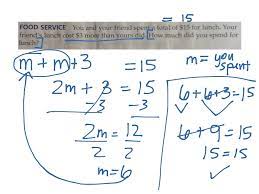 = 15
FOOD SERVICE You and your friend spent a total of $15 for lunch. Your
friend's lunch cost $3 more than yours did. How much did you spend for
lunch?
m+m+3 = 15
m = you spent
2m + 3 = 15
-3 -3
6+6+3=15
2m = 12
2 2
6+9=15
m=6
15=15